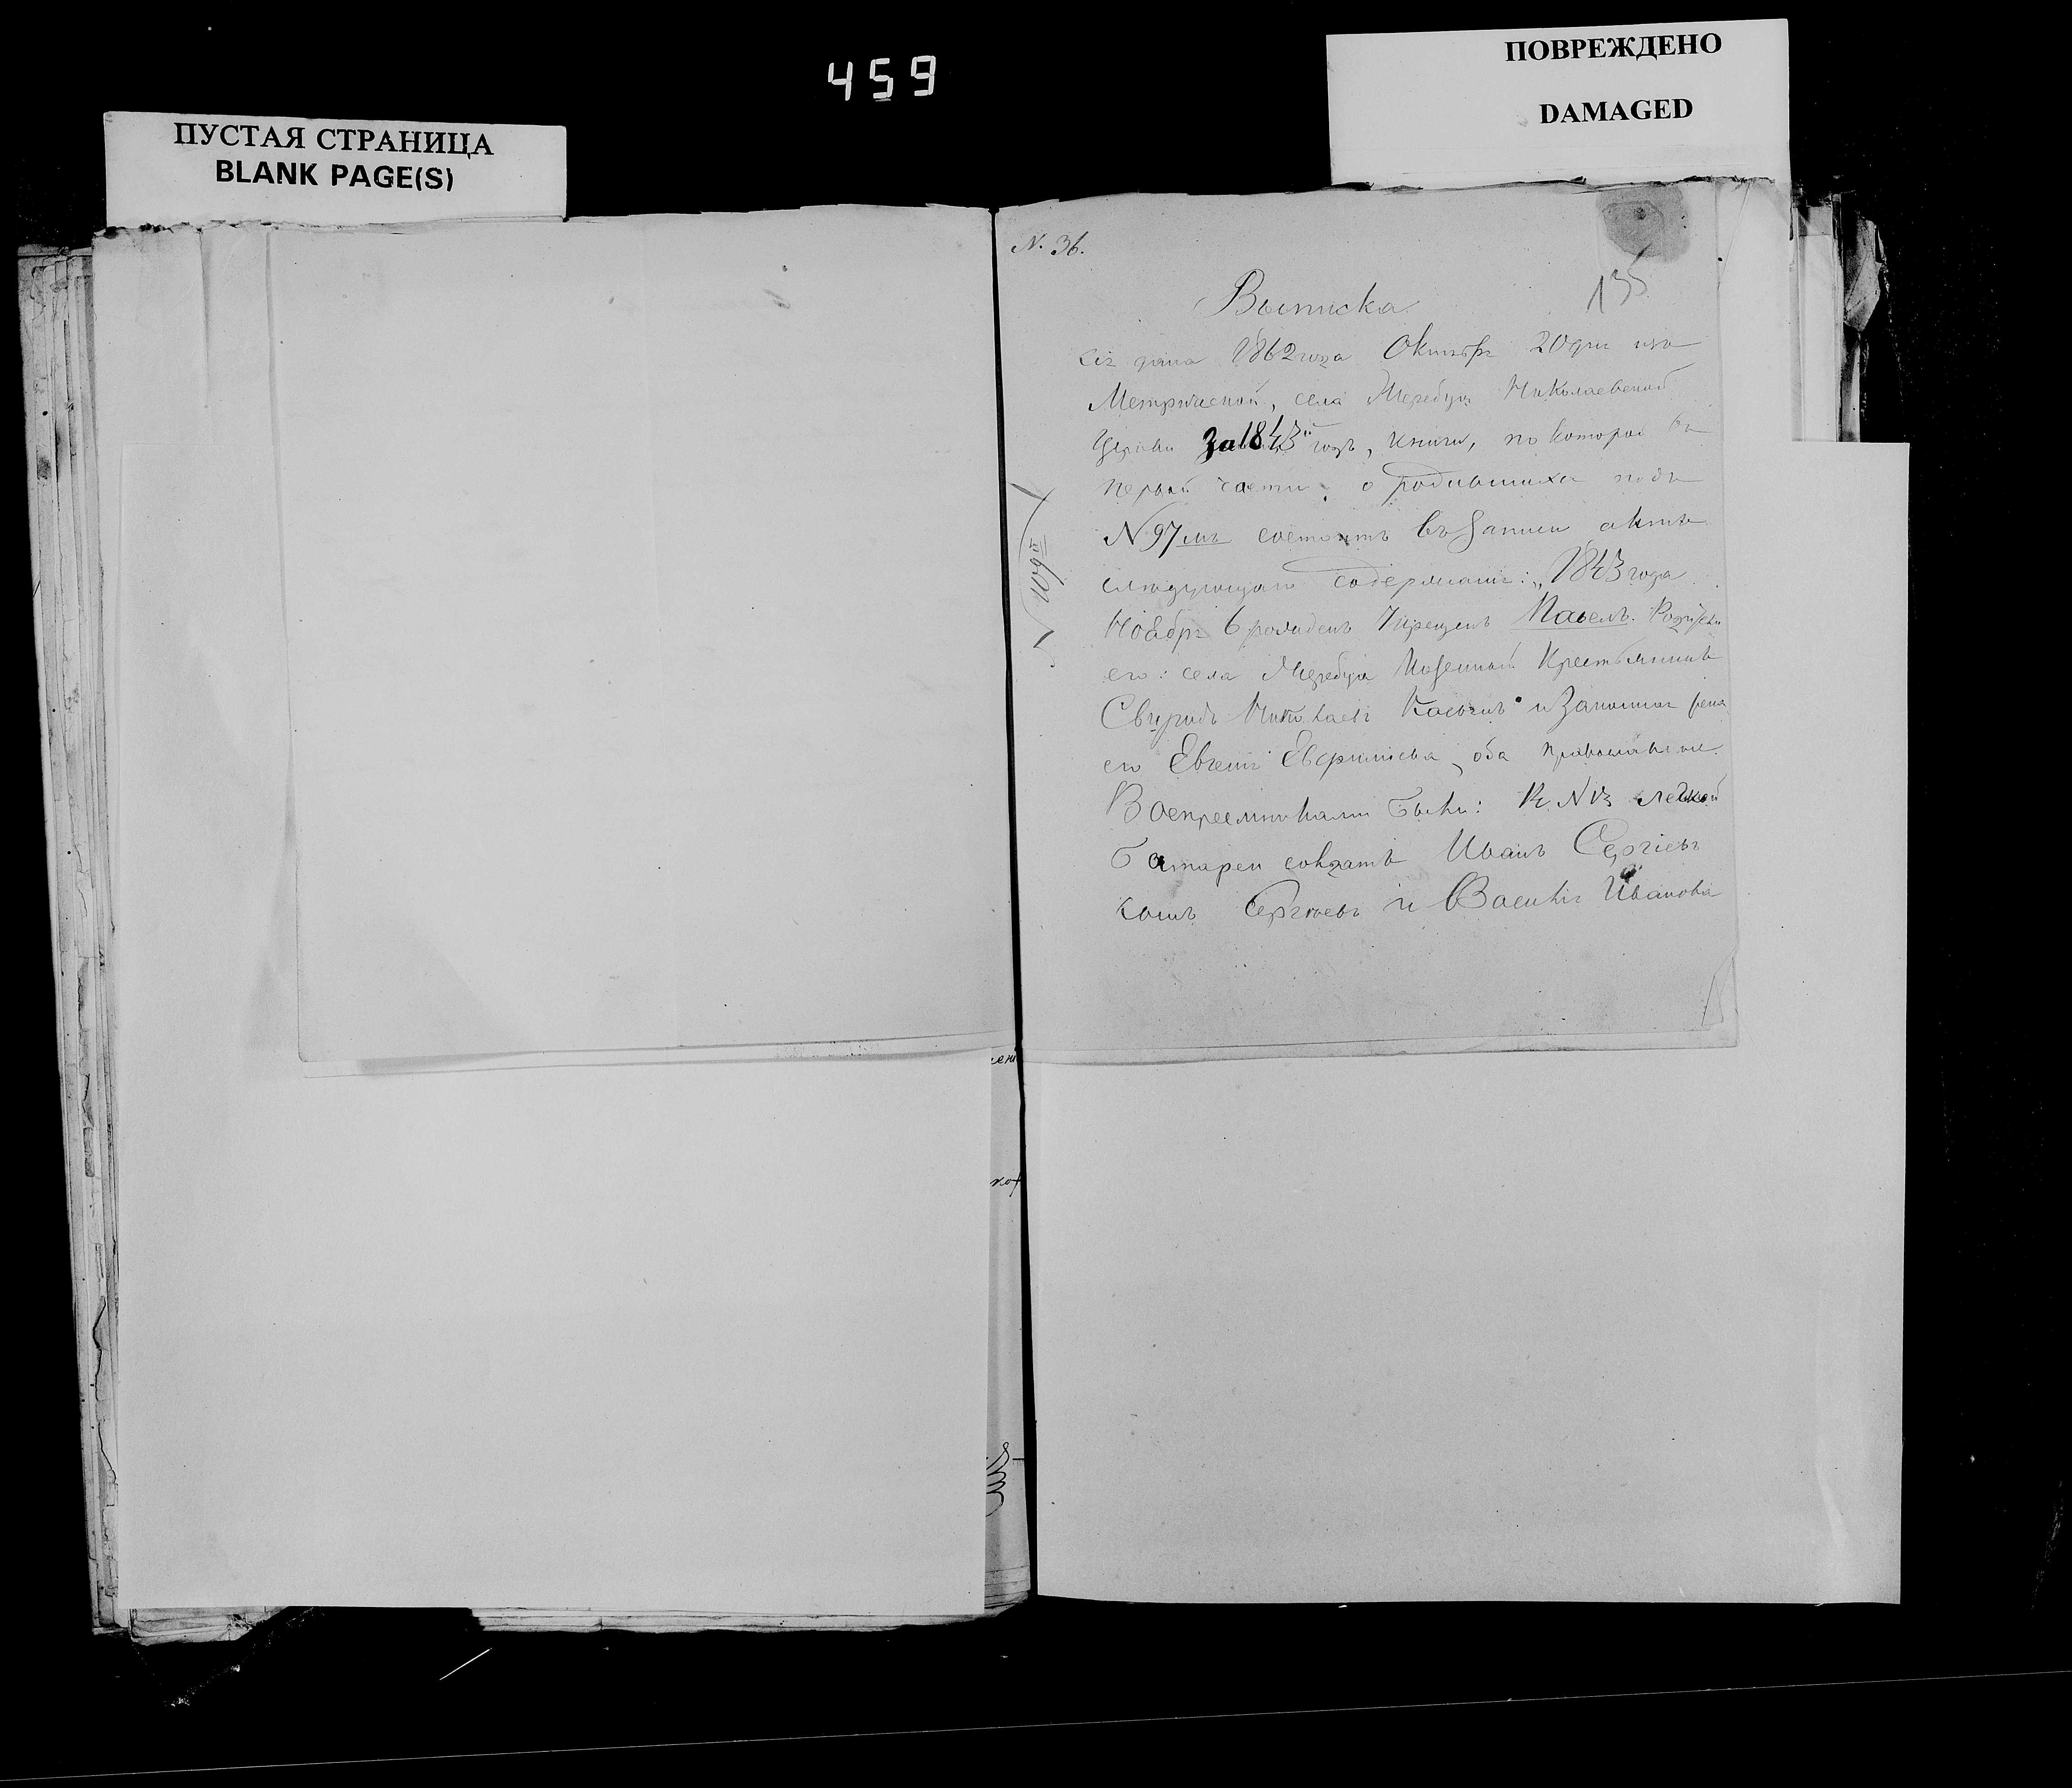 459
ПУСТАЯ СТРАНИЦА
BLANK PAGE(S)
ПОВРЕЖДЕНО
DAMAGED
N. 36.
135
Выписка
сія дана 1862 года Октября 20 дня изъ
Метрической, села Николаевской
Церкви за 1843й годъ, книги, по которой въ
первой части, о родившихся подъ
N 97мъ состоитъ въ записи актъ
слѣдующаго содержанія: „1843 года
Ноября 6 рожденъ 7 крещенъ Павелъ. Родители
его: села Казенный Крестьянинъ
Николаевъ и Законная жена
его Евгенія оба православные.
Воспреемниками были: легкой
Батареи солдатъ Иванъ Сергіевъ
сынъ Сергіевъ и Иванова